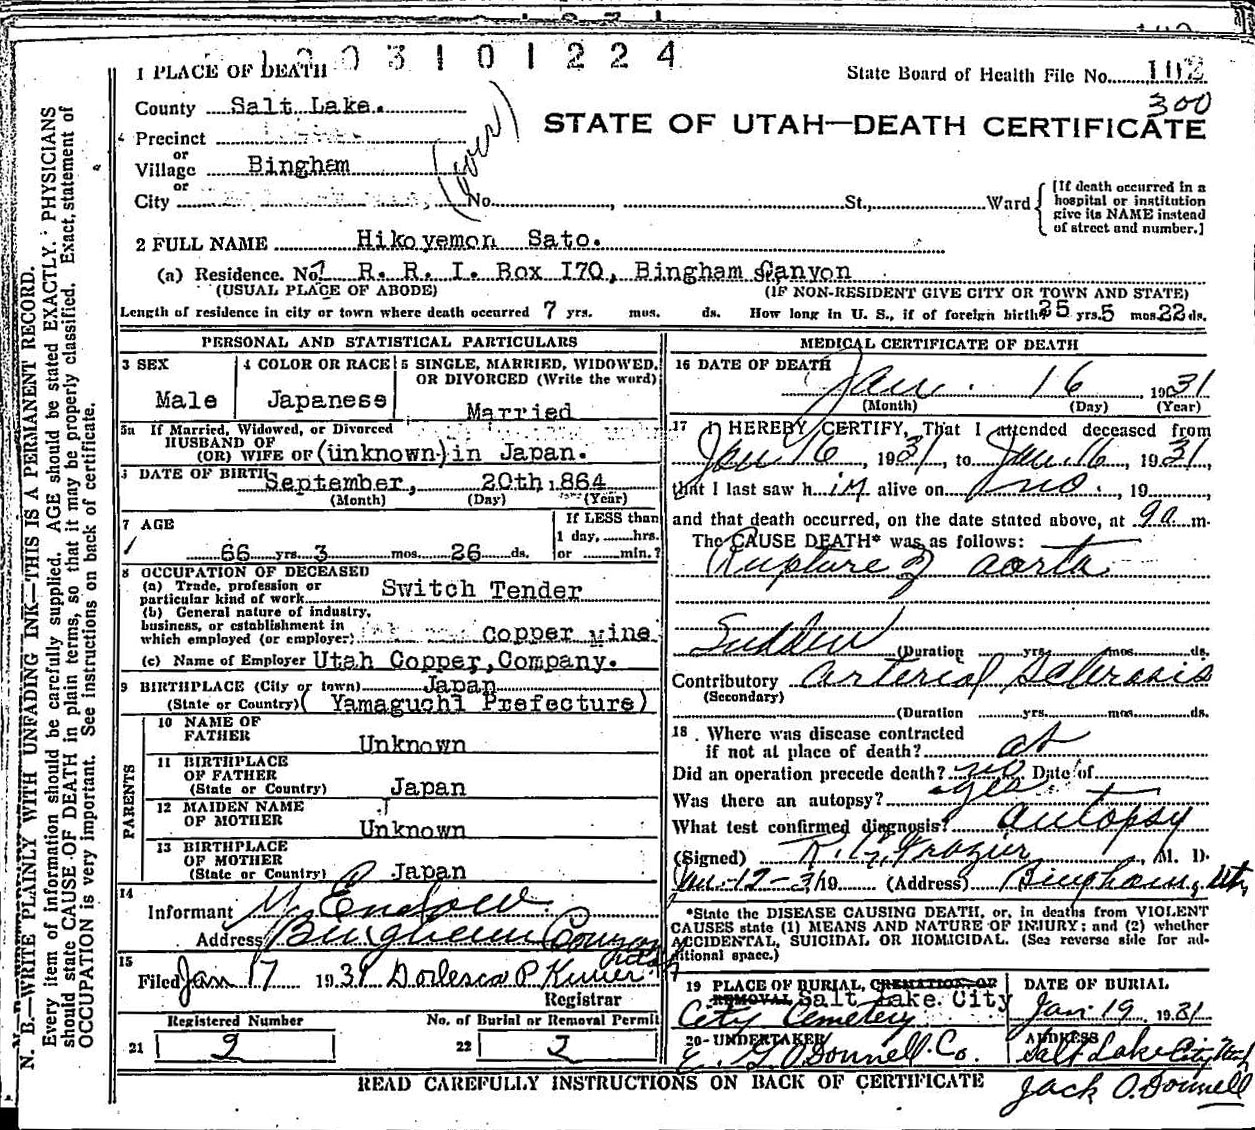 1 0 0 3 1 0 1 2 2 4
1 PLACE OF DEATH
State Board of Health File No. 102
300
County Salt Lake.
STATE OF UTAH—DEATH CERTIFICATE
Precinct
or
Village Bingham
(over)
or
City No. St., Ward
[If death occurred in a
hospital or institution
give its NAME instead
of street and number.]
2 FULL NAME Hikoyemon Sato.
(a) Residence. No. R. R. I. Box 170, Bingham Canyon
(USUAL PLACE OF ABODE) (IF NON-RESIDENT GIVE CITY OR TOWN AND STATE)
Length of residence in city or town where death occurred 7 yrs. mos. ds. How long in U. S., if of foreign birth? 25 yrs. 5 mos. 22 ds.
PERSONAL AND STATISTICAL PARTICULARS
3 SEX
Male
4 COLOR OR RACE
Japanese
5 SINGLE, MARRIED, WIDOWED,
OR DIVORCED (Write the word)
Married
5a If Married, Widowed, or Divorced
HUSBAND OF
(OR) WIFE OF (unknown) in Japan.
6 DATE OF BIRTH
September, 20th, 1864
(Month) (Day) (Year)
7 AGE
66 yrs. 3 mos. 26 ds.
If LESS than
1 day, hrs.
or min.?
8 OCCUPATION OF DECEASED
(a) Trade, profession or
particular kind of work Switch Tender
(b) General nature of industry,
business, or establishment in
which employed (or employer) Copper Mine
(c) Name of Employer Utah Copper, Company.
9 BIRTHPLACE (City or town) Japan
(State or Country) ( Yamaguchi Prefecture)
PARENTS
10 NAME OF
FATHER Unknown
11 BIRTHPLACE
OF FATHER
(State or Country) Japan
12 MAIDEN NAME
OF MOTHER Unknown
13 BIRTHPLACE
OF MOTHER
(State or Country) Japan
14
Informant M. Endow
Address Bingham Canyon
Utah
15
Filed Jan 17 1931
Registrar
Registered Number
21 2
No. of Burial or Removal Permit
22 2
MEDICAL CERTIFICATE OF DEATH
16 DATE OF DEATH
Jan. 16 , 1931
(Month) (Day) (Year)
17 I HEREBY CERTIFY, That I attended deceased from
Jan 16, 1931, to Jan. 16, 1931,
that I last saw him alive on no., 19 ,
and that death occurred, on the date stated above, at 9 a m.
The CAUSE DEATH* was as follows:
Rupture of aorta
Sudden (Duration yrs. mos. ds.
Contributory arterial Sclerosis
(Secondary)
(Duration yrs. mos. ds.
18. Where was disease contracted
if not at place of death? at
Did an operation precede death? no Date of
Was there an autopsy? yes
What test confirmed diagnosis? autopsy
(Signed) R. G. Frazier, M. D.
Jan. 17-31 19 (Address) Bingham, Utah
*State the DISEASE CAUSING DEATH, or, in deaths from VIOLENT
CAUSES state (1) MEANS AND NATURE OF INJURY; and (2) whether
ACCIDENTAL, SUICIDAL OR HOMICIDAL. (See reverse side for ad-
ditional space.)
19 PLACE OF BURIAL, CREMATION OR
REMOVAL Salt Lake City
City Cemetery
DATE OF BURIAL
Jan 19 1931
20 UNDERTAKER
E. G. O'Donnell. Co.
ADDRESS
Salt Lake City Utah
READ CAREFULLY INSTRUCTIONS ON BACK OF CERTIFICATE
Jack O'Donnell
N. B.—WRITE PLAINLY WITH UNFADING INK—THIS IS A PERMANENT RECORD.
Every item of information should be carefully supplied. AGE should be stated EXACTLY. PHYSICIANS
should state CAUSE OF DEATH in plain terms, so that it may be properly classified. Exact statement of
OCCUPATION is very important. See instructions on back of certificate.